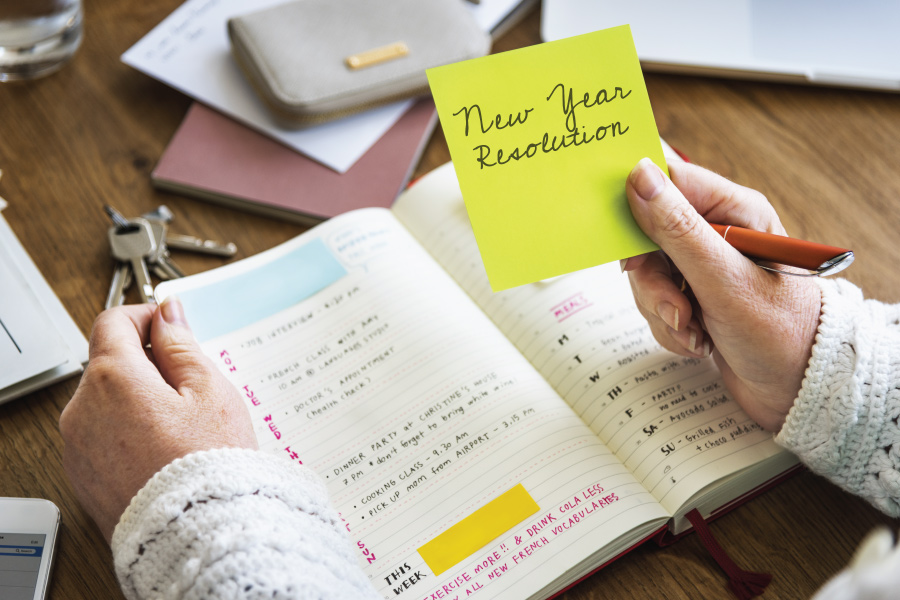 New Year
Resolution
• JOB INTERVIEW - 4.30 PM
• FRENCH CLASS WITH AMY
10 AM @ LANGUAGES STUDIO
• DOCTOR'S APPOINTMENT
(health check)
• DINNER PARTY at CHRISTINE'S HOUSE
7 PM * don't forget to bring white wine
• COOKING CLASS - 9.30 AM
• PICK UP MOM from AIRPORT - 3.15 PM
MON
TUE
WED
TH
SUN
THIS
WEEK
EXERCISE MORE!! & DRINK COLA LESS
ALL NEW FRENCH VOCABULARIES
MEALS
M
T
W - Roasted
TH - Pasta with
F - PARTY!
no need to cook
SA - Avocado Salad
SU - Grilled Fish
+ choco pudding